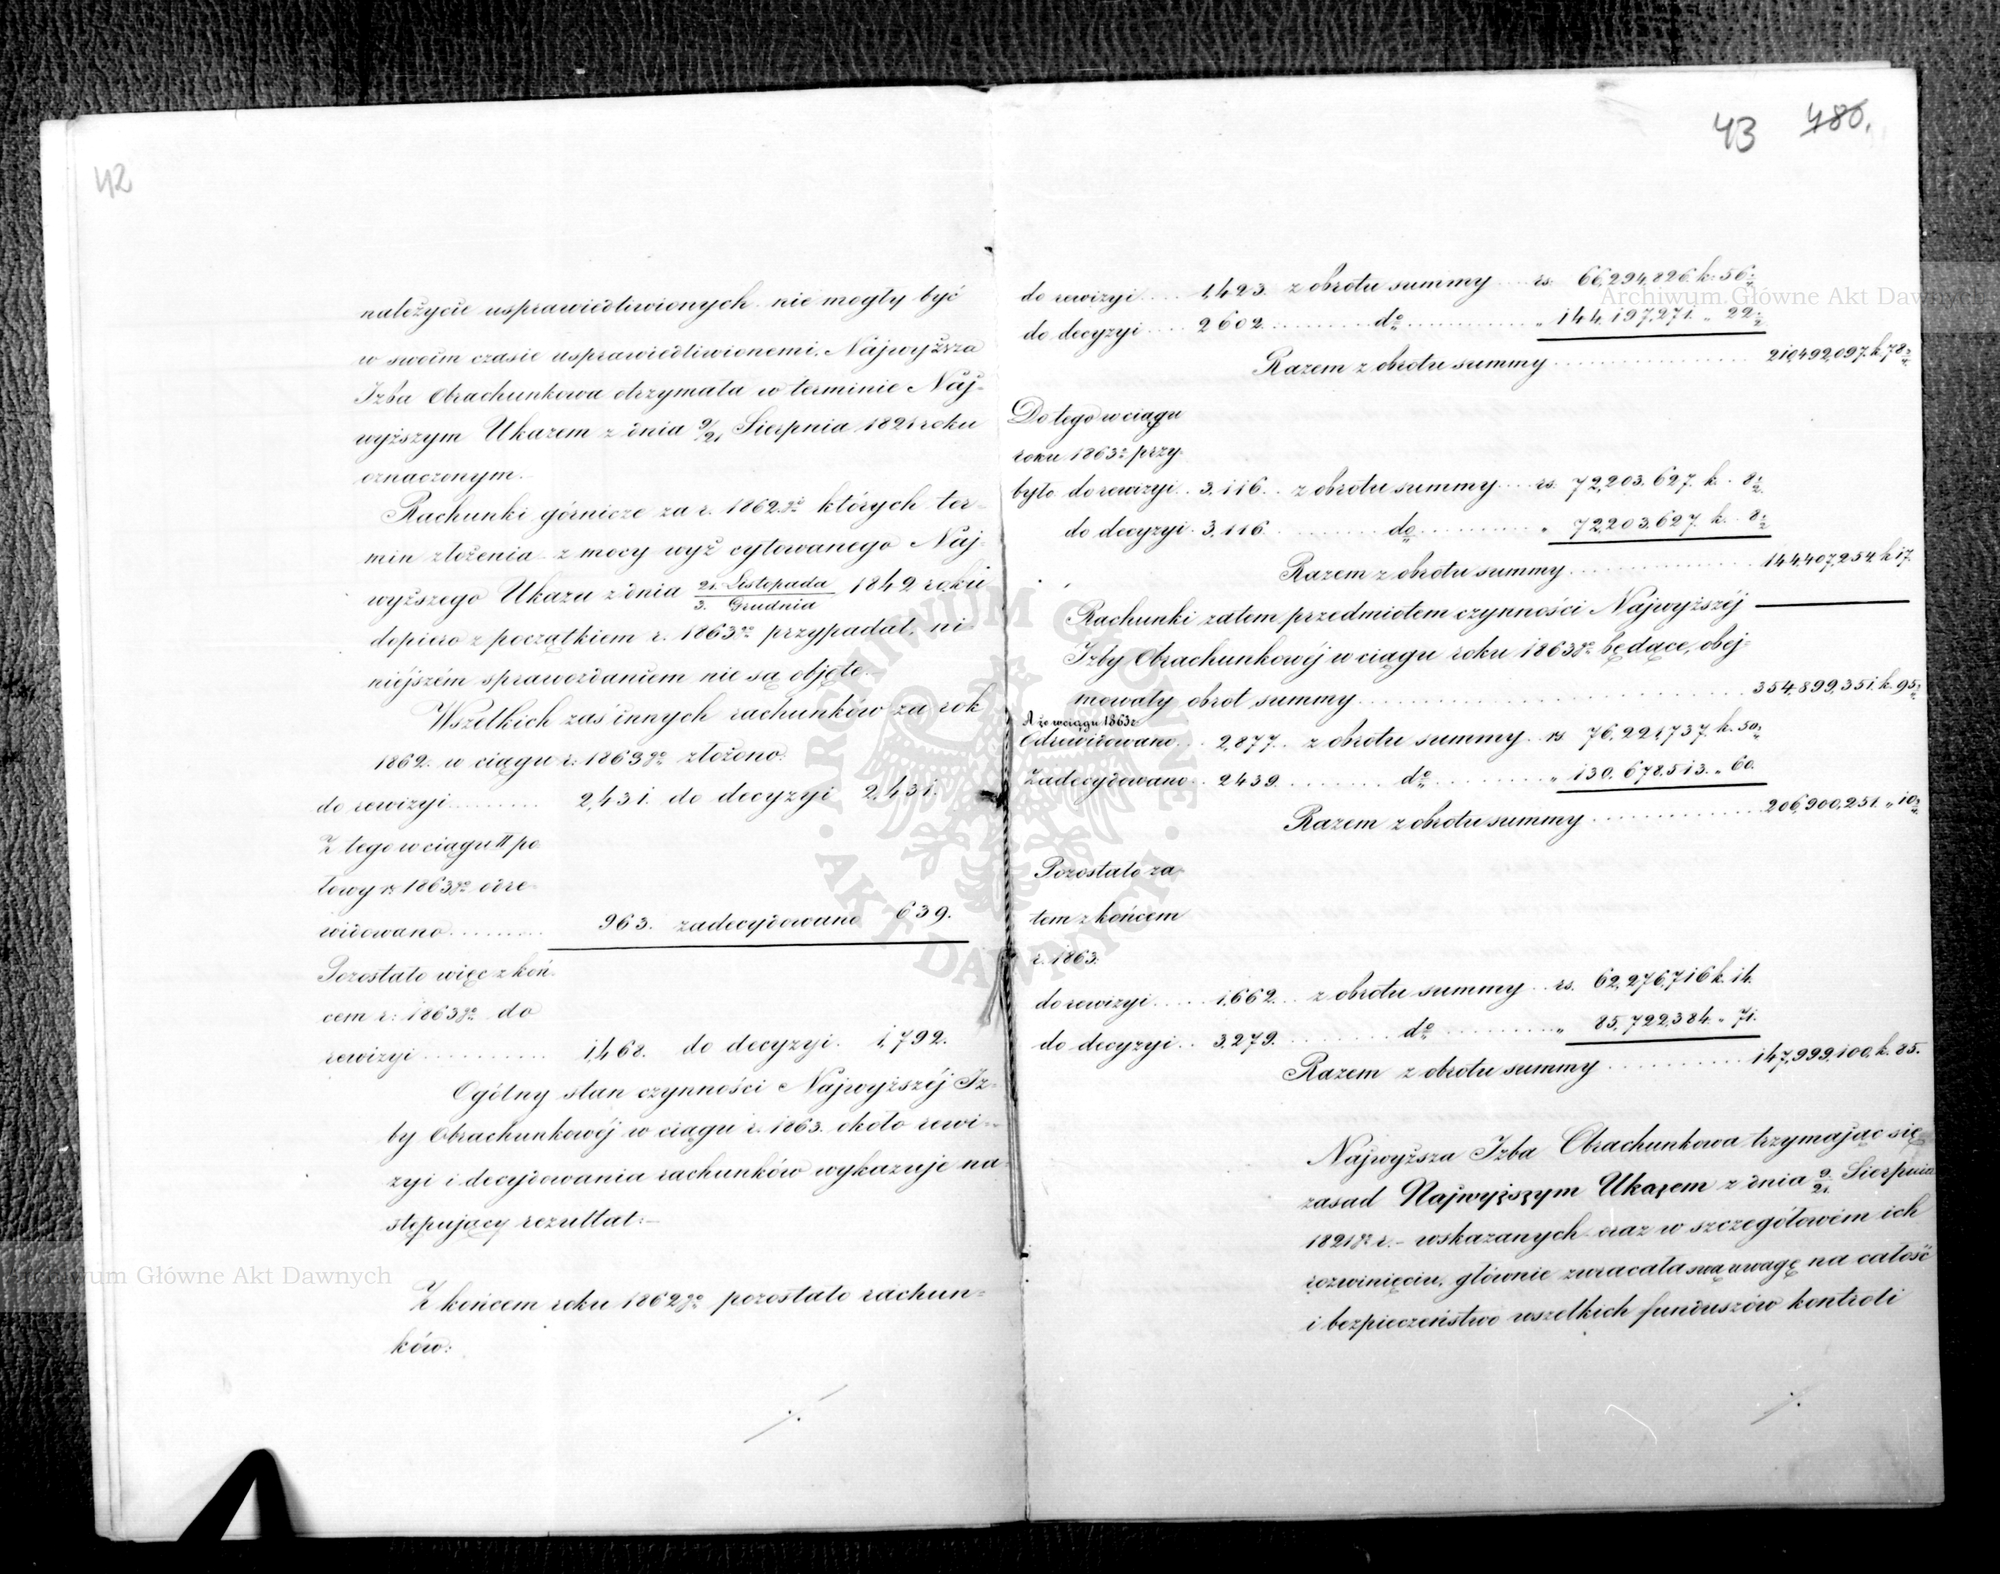 42
należycie usprawiedliwionych nie mogły być
w swoim czasie usprawiedliwionemi. Najwyższa
Izba Obrachunkowa otrzymała w terminie Naj-
wyższym Ukazem z dnia 9/21 Sierpnia 1821 roku
oznaczonym.
Rachunki górnicze za r. 1862go których ter-
min złożenia z mocy wyż cytowanego Naj-
wyższego Ukazu z dnia 21. Listopada / 3. Grudnia 1842 roku
dopiero z początkiem r. 1863go przypadał, ni-
niejszém sprawozdaniem nie są objęte.
Wszelkich zaś innych rachunków za rok
1862. w ciągu r. 1863go złożono:
do rewizyi ......... 2,431. do decyzyi 2,431.
Z tego w ciągu II po
łowy r. 1863go odre-
widowano ......... 963. zadecydowano 639.
Pozostało więc z koń-
cem r: 1863go do
rewizyi ............ 1,468. do decyzyi. 1,792.
Ogólny stan czynności Najwyższéj Iz-
by Obrachunkowéj w ciągu r. 1863. około rewi-
zyi i decydowania rachunków wykazuje na-
stępujący rezultat:-
Z końcem roku 1862go pozostało rachun-
ków:
./.
43 480.
do rewizyi .... 1,423. z obrotu summy ... rs. 66,294,826. k. 56½
do decyzyi .... 2602 ........... do ........... „ 144,197,271. „ 22½
Razem z obrotu summy .................. 210,492,097. k. 78½
Do tego w ciągu
roku 1863go przy-
było do rewizyi .. 3,116. z obrotu summy ... rs. 72,203,627. k. 8½
do decyzyi . 3,116. ......... do ........... „ 72,203,627. k. 8½
Razem z obrotu summy ............... 144,407,254 k 17.
Rachunki zatem przedmiotem czynności Najwyższéj
Izby Obrachunkowéj w ciągu roku 1863go będące, obej-
mowały obrot summy ................... 354,899,351. k. 95½
A że w ciągu 1863r
Odrewidowano ... 2,877. z obrotu summy .. rs 76,221,737. k. 50½
Zadecydowano .. 2439. ......... do ......... „ 130,678,513. „ 60.
Razem z obrotu summy ............... 206,900,251. „ 10½
Pozostało za-
tem z końcem
r. 1863.
do rewizyi ..... 1,662. z obrotu summy .. rs. 62,276,716 k. 14.
do decyzyi .. 3,279. .......... do .......... „ 85,722,384. „ 71.
Razem z obrotu summy ......... 147,999,100, k. 85.
Najwyższa Izba Obrachunkowa trzymając się
zasad Najwyższym Ukazem z dnia 9/21. Sierpnia
1821go r. - wskazanych oraz w szczegółowém ich
rozwinięciu, głównie zwracała swą uwagę na całość
i bezpieczeństwo wszelkich funduszów kontroli
./.
Archiwum Główne Akt Dawnych
Archiwum Główne Akt Dawnych
ARCHIWUM GŁÓWNE · AKT DAWNYCH ·